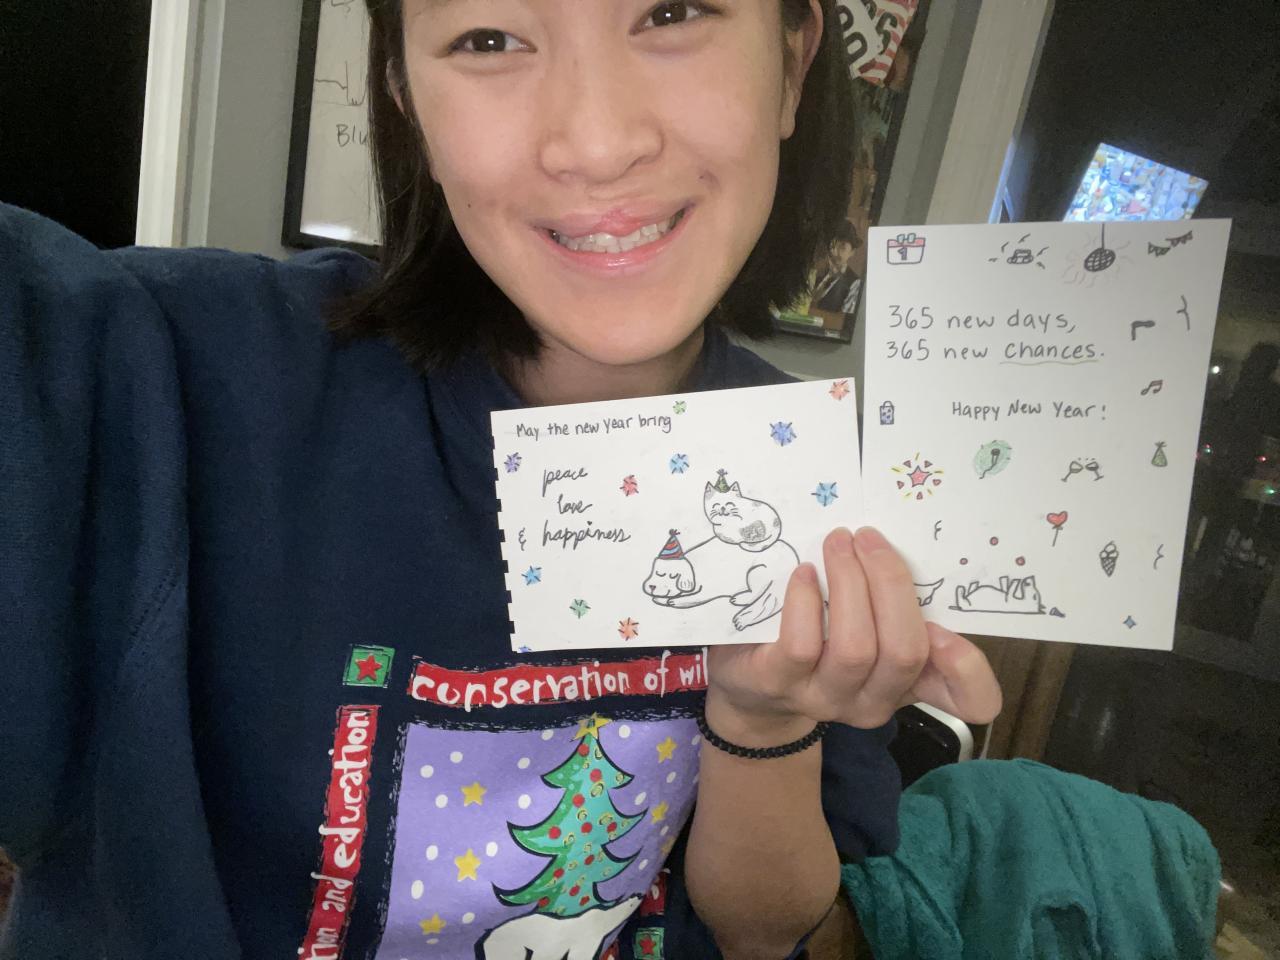 Blu
May the new year bring
peace
love
& happiness
1
365 new days,
365 new chances.
Happy New Year!
conservation of wil
tion and education